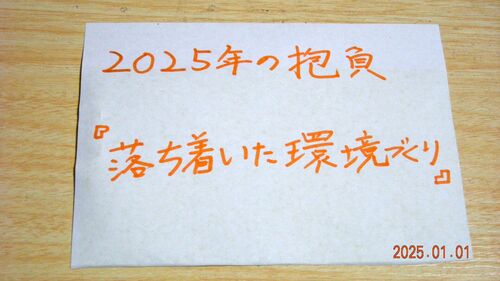 2025年の抱負
『落ち着いた環境づくり』
2025.01.01